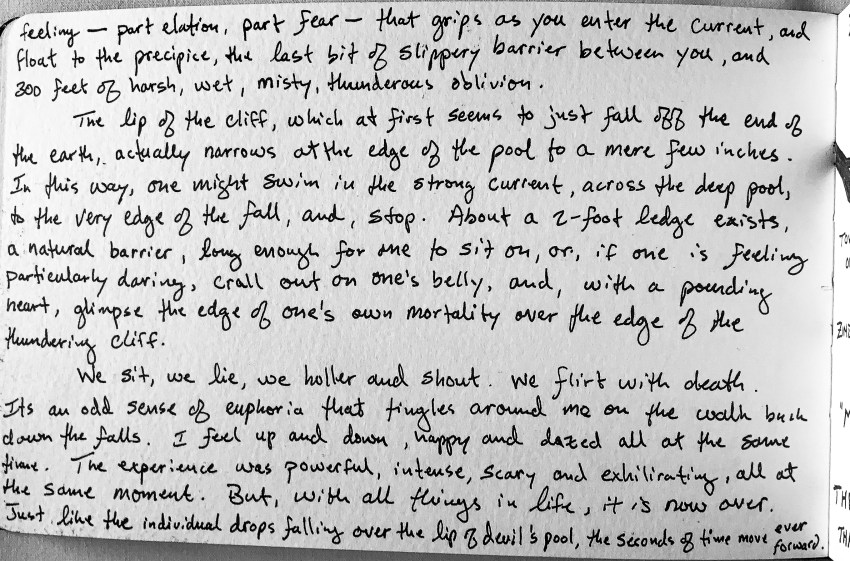 feeling — part elation, part fear — that grips as you enter the current, and
float to the precipice, the last bit of slippery barrier between you, and
300 feet of harsh, wet, misty, thunderous oblivion.
The lip of the cliff, which at first seems to just fall off the end of
the earth, actually narrows at the edge of the pool to a mere few inches.
In this way, one might swim in the strong current, across the deep pool,
to the very edge of the fall, and, stop. About a 2-foot ledge exists,
a natural barrier, long enough for one to sit on, or, if one is feeling
particularly daring, crall out on one's belly, and, with a pounding
heart, glimpse the edge of one's own mortality over the edge of the
thundering cliff.
We sit, we lie, we holler and shout. We flirt with death.
Its an odd sense of euphoria that tingles around me on the walk back
down the falls. I feel up and down, happy and dazed all at the same
time. The experience was powerful, intense, scary and exhilirating, all at
the same moment. But, with all things in life, it is now over.
Just like the individual drops falling over the lip of devil's pool, the seconds of time move ever
forward.